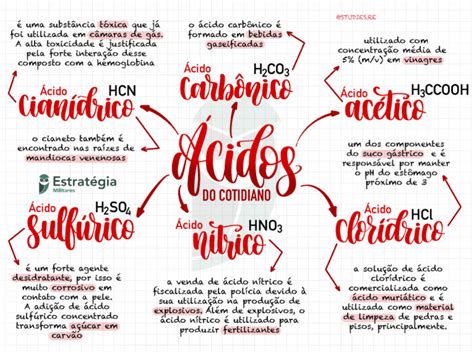 @STUDIES.RE
é uma substância tóxica que já
foi utilizada em câmaras de gás.
A alta toxicidade é justificada
pela forte interação desse
composto com a hemoglobina
Ácido
HCN
cianídrico
o cianeto também é
encontrado nas raízes de
mandiocas venenosas
o ácido carbônico é
formado em bebidas
gaseificadas
Ácido
H2CO3
carbônico
utilizado com
concentração média de
5% (m/v) em vinagres
Ácido
H3CCOOH
acético
um dos componentes
do suco gástrico e é
responsável por manter
o pH do estômago
próximo de 3
Ácidos
DO COTIDIANO
Estratégia
Militares
Ácido
H2SO4
sulfúrico
é um forte agente
desidratante, por isso é
muito corrosivo em
contato com a pele.
A adição de ácido
sulfúrico concentrado
transforma açúcar em
carvão
Ácido
HNO3
nítrico
a venda de ácido nítrico é
fiscalizada pela polícia devido à
sua utilização na produção de
explosivos. Além de explosivos, o
ácido nítrico é utilizado para
produzir fertilizantes
Ácido
HCl
clorídrico
a solução de ácido
clorídrico é
comercializada como
ácido muriático e é
utilizada como material
de limpeza de pedras e
pisos, principalmente.